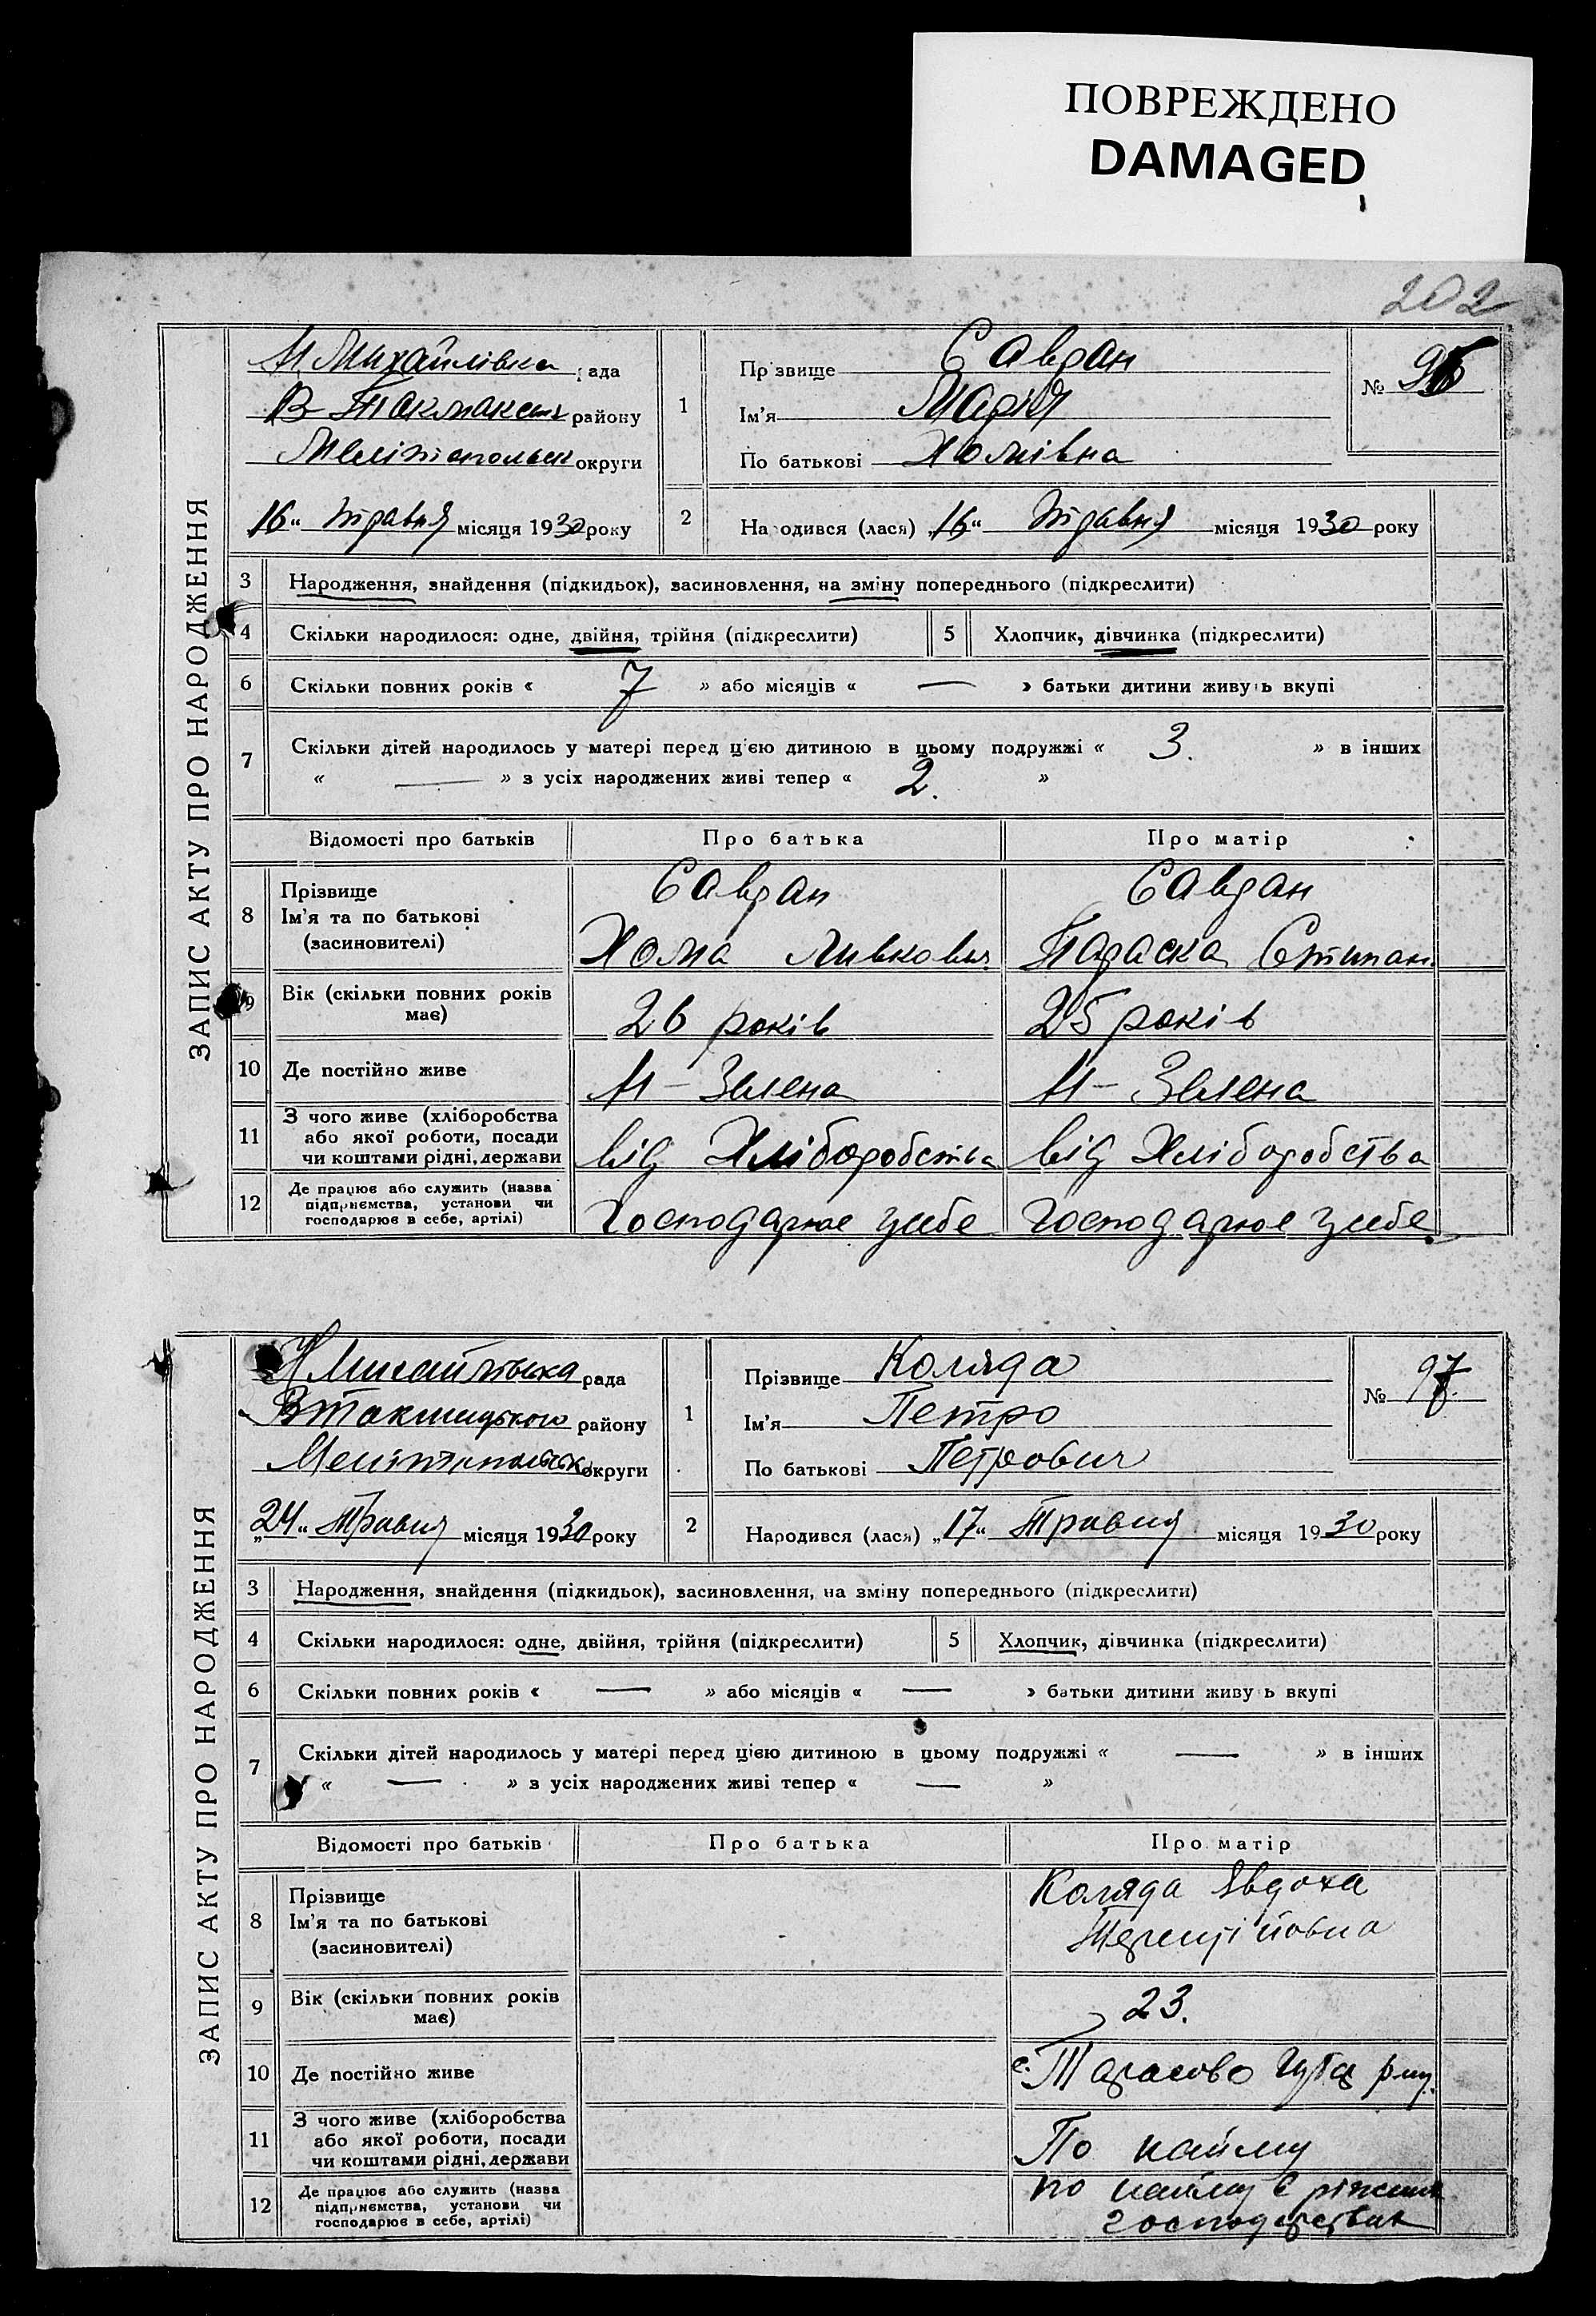 ПОВРЕЖДЕНО
DAMAGED
202
ЗАПИС АКТУ ПРО НАРОДЖЕННЯ
Н Михайлівка рада
В-Токмакськ району
Мелітопольськ округи
„16“ травня місяця 1930 року
1 Прізвище Савран
Ім’я Марія
По батькові Хомівна
№ 96
2 Народився (лася) „16“ травня місяця 1930 року
3 Народження, знайдення (підкидьох), засиновлення, на зміну попереднього (підкреслити)
4 Скільки народилося: одне, двійня, трійня (підкреслити) 5 Хлопчик, дівчинка (підкреслити)
6 Скільки повних років « 7 » або місяців « — » батьки дитини живуть вкупі
7 Скільки дітей народилось у матері перед цією дитиною в цьому подружжі « 3. » в інших
« — » з усіх народжених живі тепер « 2. »
Відомості про батьків Про батька Про матір
8 Прізвище Савран Савран
Ім’я та по батькові
(засиновителі) Хома Параска Степан.
9 Вік (скільки повних років
має) 26 років 25 років
10 Де постійно живе Н-Зелена Н-Зелена
11 З чого живе (хліборобства
або якої роботи, посади
чи коштами рідні, держави від Хліборобства від Хліборобства
12 Де працює або служить (назва
підприємства, установи чи
господарює в себе, артілі) Господарює усебе Господарює усебе
ЗАПИС АКТУ ПРО НАРОДЖЕННЯ
Н Михайлівська рада
ВТокмацького району
Мелітопольськ округи
„24“ Травня місяця 1930 року
1 Прізвище Коляда
Ім’я Петро
По батькові Петрович
№ 97
2 Народився (лася) „17“ Травня місяця 1930 року
3 Народження, знайдення (підкидьок), засиновлення, на зміну попереднього (підкреслити)
4 Скільки народилося: одне, двійня, трійня (підкреслити) 5 Хлопчик, дівчинка (підкреслити)
6 Скільки повних років « — » або місяців « — » батьки дитини живуть вкупі
7 Скільки дітей народилось у матері перед цією дитиною в цьому подружжі « — » в інших
« — » з усіх народжених живі тепер « — »
Відомості про батьків Про батька Про матір
8 Прізвище Коляда Явдоха
Ім’я та по батькові Терентійовна
(засиновителі)
9 Вік (скільки повних років
має) 23.
10 Де постійно живе с. Тарасово
11 З чого живе (хліборобства
або якої роботи, посади
чи коштами рідні, держави По найму
12 Де працює або служить (назва по найму в ріжних
підприємства, установи чи
господарює в себе, артілі) господарствах